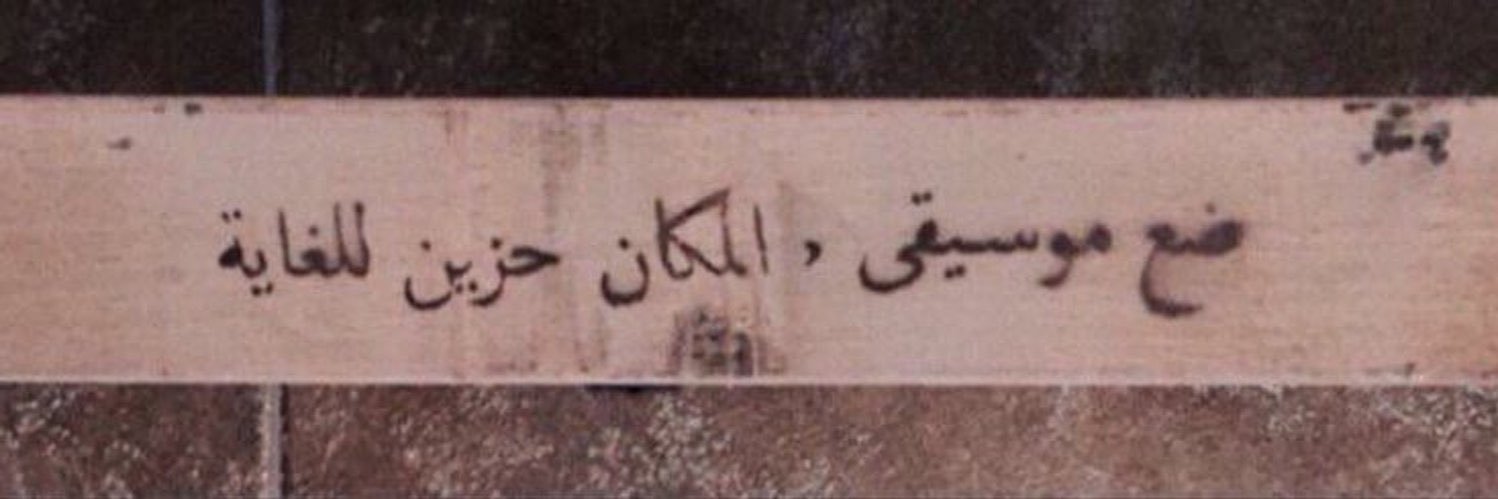 ضع موسيقى ، المكان حزين للغاية